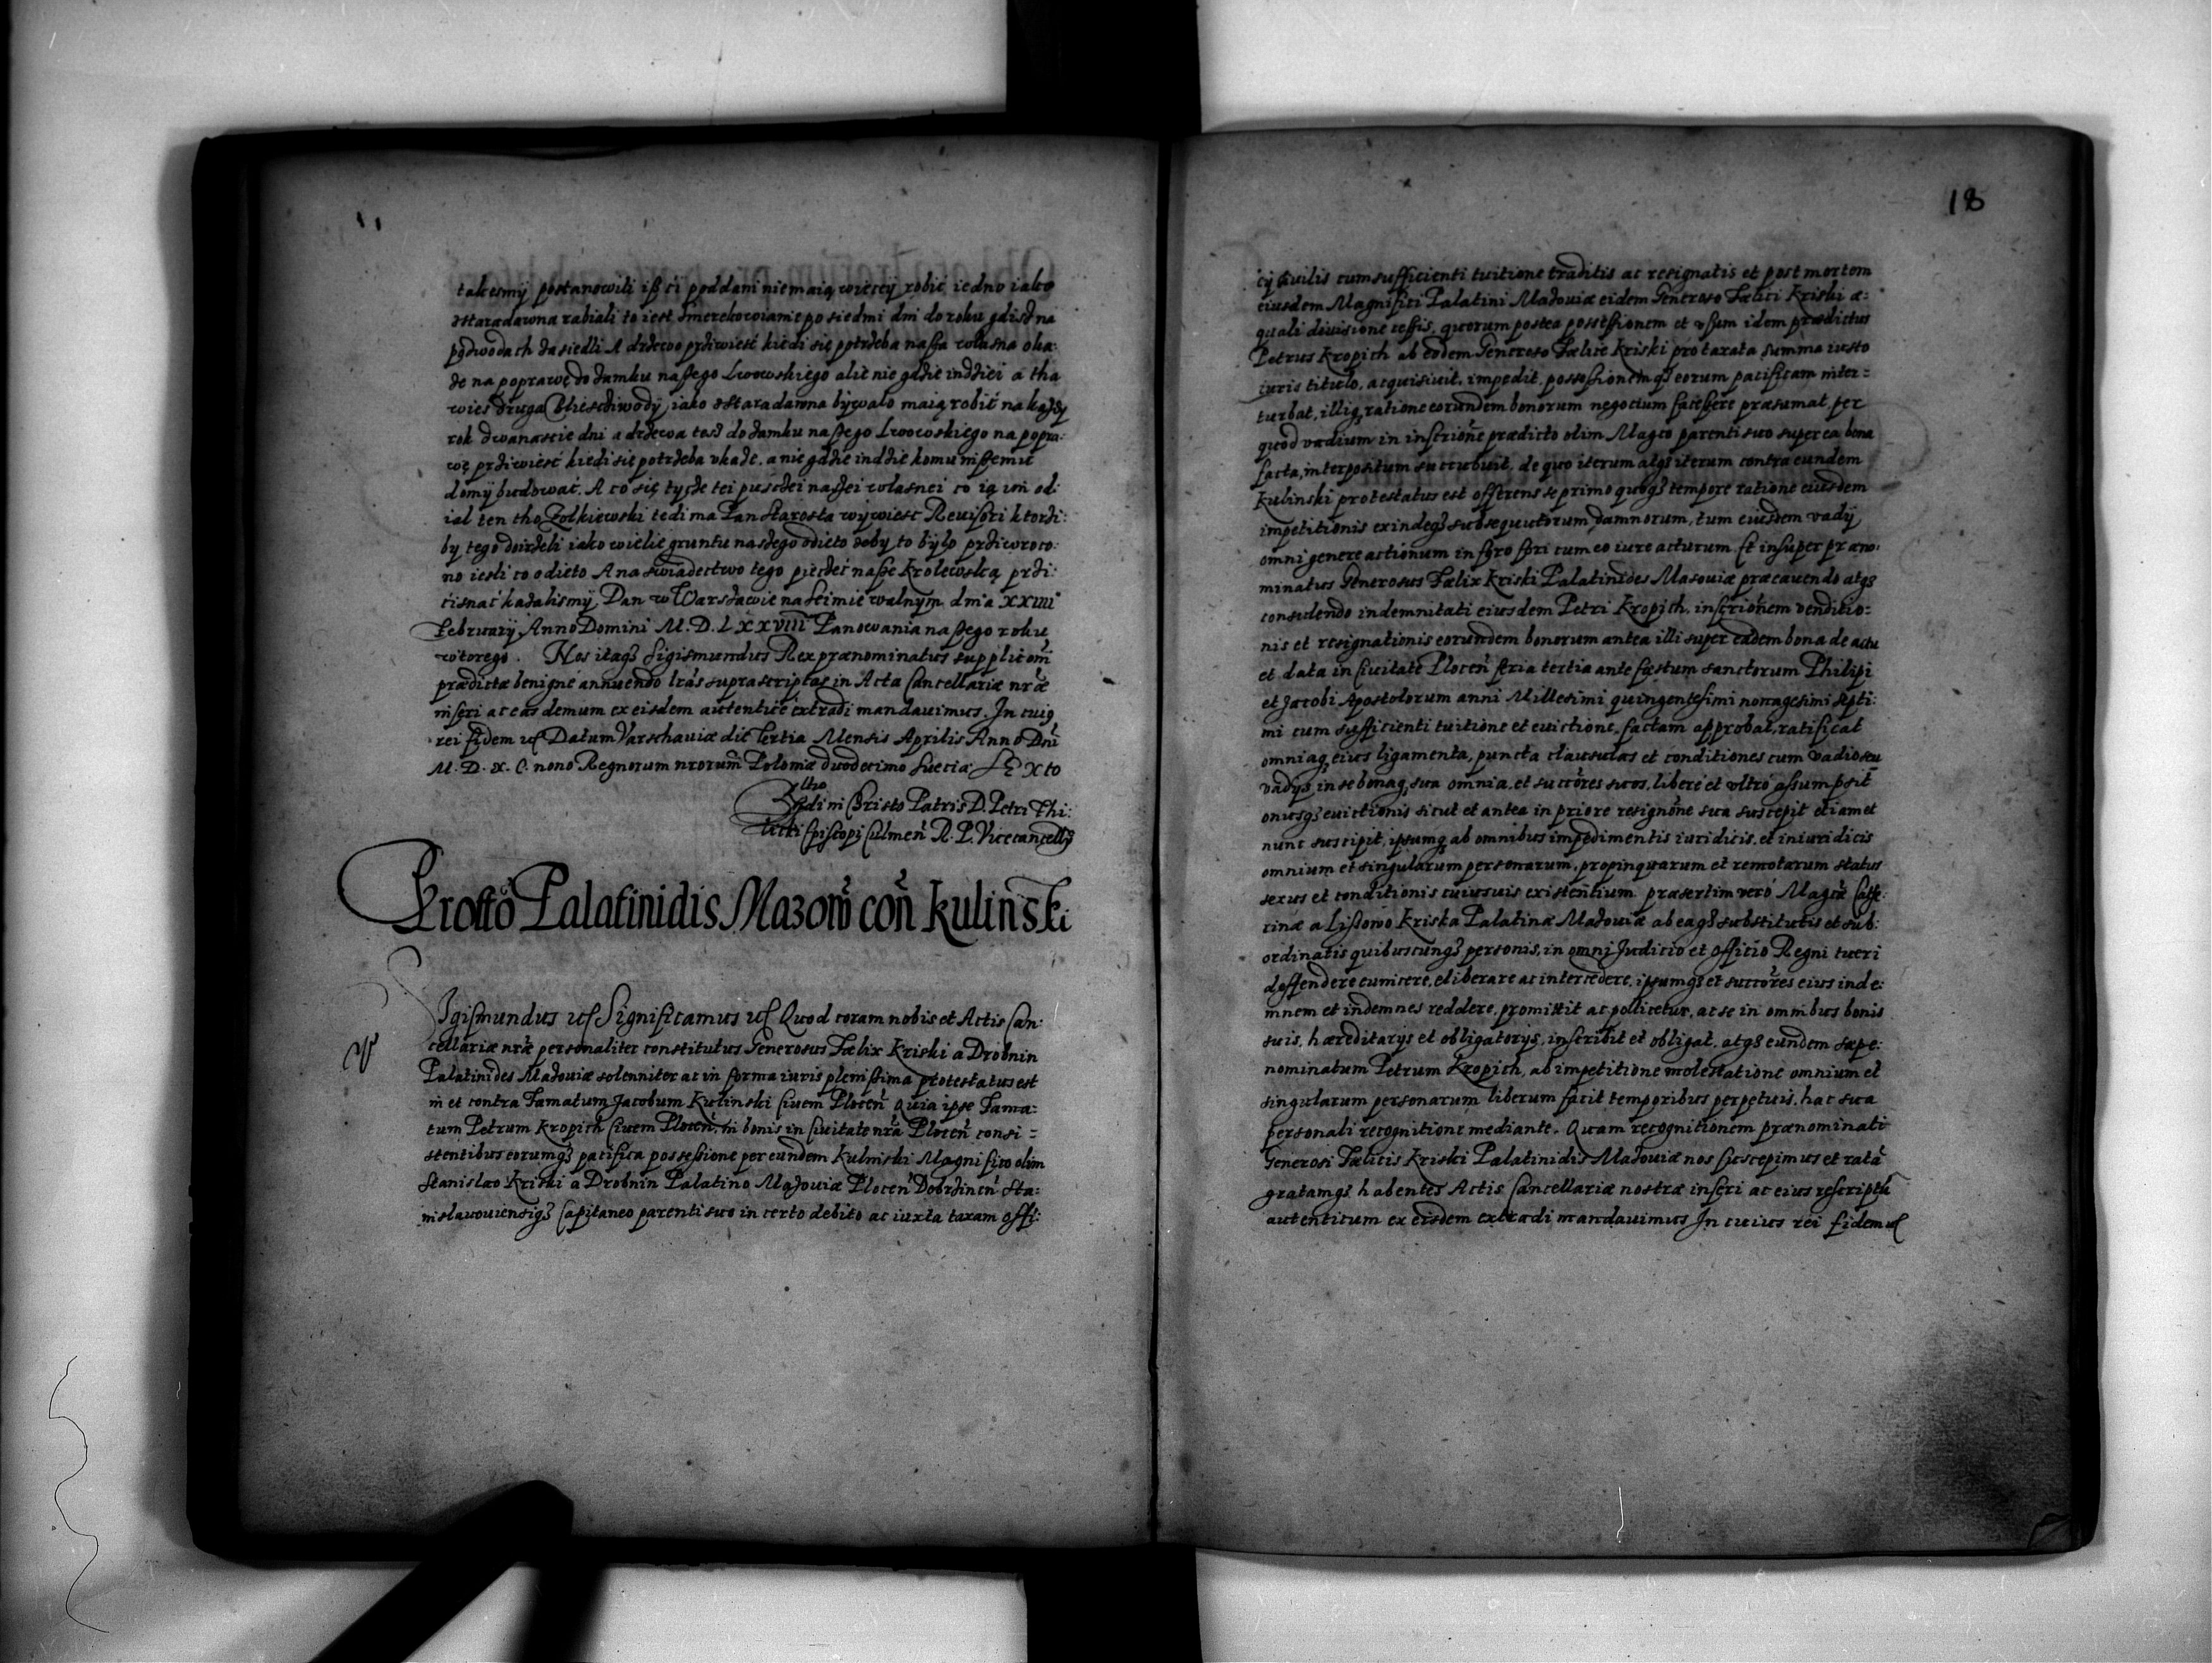 takesmÿ postanowili iß ći poddani niemaią wiecey robić iedno iako
zstaradawna rabiali to iest zmerekowanie po siedmi dni do roku gdisz na
podwodach zasiedli A drzewo przÿwiesć kiedi się potrzeba nassa własna oka:
że na poprawę do zamku nassego Lwowskiego ale nie gdzie indziei a tha
wies druga iako zstaradawna bÿwało maią robić na każdÿ
rok dwanascie dni a drzewa tesz do zamku nassego Lwowskiego na popra:
wę prziwiesć kiedi się potrzeba vkaże. a nie gdzie indzie komu inssemu
domÿ budować. A co się tÿcze tei pusczei nassei własnei co ią im od:
iął ten tho Zołkiewski tedi ma Pan Starosta wÿwiesc Reuisori ktorzi:
by tego doirzeli iako wielie gruntu naszego odieto zeby to bÿlo prziwroco:
no iesli co odieto A na swiadectwo tego pieczęć nasse Krolewską przi:
cisnać kazalismÿ Dan w Warszawie na Seimie walnÿm dnia XXIIII
Februarÿ Anno Domini M. D. LXXVIII Panowania nassego roku
wtorego. Nos itaq3 Sigismundus Rex prænominatus supplicõni
prædictæ benigne annuendo lrãs suprascriptas in Acta Cancellariæ nrãe
inseri ac eas demum ex eisdem autentice extradi mandauimus. In cuiq
rei fidem uc Datum Varschauiæ die tertia Mensis Aprilis Anno Dni
M. D. X. C. nono Regnorum nrorum Poloniæ duodecimo Sueciæ Sexto
in Christo Patris D. Petri Thi:
licki Episcopi Culmen R. P. Vicecancellÿ
Protto Palatinidis Mazow con Kulinski
Sigismundus uc Significamus uc Quod coram nobis et Actis Can:
cellariæ nræ personaliter constitutus Generosus Fælix Kriski a Drobnin
Palatinides Mazouiæ solenniter ac in forma iuris plenissima protestatus est
in et contra Famatum Jacobum Kulinski Ciuem Plocen Quia ipse Fama:
tum Petrum Kropich Ciuem Plocen, in bonis in Ciuitate nra Plocen consi=
stentibus eorumq3 pacifica possessione per eundem Kulinski Magnifico olim
Stanislao Kriski a Drobnin Palatino Mazouiæ Plocen Dobrzinen Sta:
nislauouiensiq3 Capitaneo parenti suo in certo debito ac iuxta taxam offi:
18
cÿ Ciuilis cum sufficienti tuitione traditis ac resignatis et post mortem
eiusdem Magnifici Palatini Mazouiæ eidem Generoso Fælici Kriski æ:
quali diuisione cessis, quorum postea possessionem et vsum idem prædictus
Petrus Kropich ab eodem Generoso Fælice Kriski pro taxata summa iusto
iuris titulo, acquisiuit, impedit, possessionemq3 eorum pacificam inter=
turbat, illiq, ratione eorundem bonorum negocium facessere præsumat, per
quod vadium in inscrione prædicto olim Magco parenti suo super ea bona
facta, interpositum succubuit, de quo iterum atq3 iterum contra eundem
Kulinski protestatus est offerens se primo quoq3 tempore ratione eiusdem
impetitionis exindeq3 subsequutorum damnorum, tum eiusdem vadÿ
omni genere actionum in foro fori cum eo iure acturum. Et insuper præno:
minatus Generosus Fælix Kriski Palatinides Masouiæ præcauendo atq3
consulendo indemnitati eiusdem Petri Kropich, inscrionem venditio:
nis et resignationis eorundem bonorum antea illi super eadem bona de actu
et data in Ciuitate Plocen feria tertia ante festum sanctorum Philipi
et Jacobi Apostolorum anni Millesimi quingentesimi nonagesimi septi:
mi cum sufficienti tuitione et euictione, factam approbat, ratificat
omniaq, eius ligamenta, puncta clausulas et conditiones cum vadio seu
vadÿs, in se bonaq, sua omnia, et succores suos, libere et vltro assumpsit
onusq3 euictionis sicut et antea in priore resignone sua suscepit etiam et
nunc suscipit, ipsumq, ab omnibus impedimentis iuridicis, et iniuridicis
omnium et singularum personarum, propinquarum et remotarum status
sexus et conditionis cuiusuis existentium. præsertim vero Magcæ Cathe:
rinæ a Lissowo Kriska Palatinæ Mazouiæ ab eaq3 substitutis et sub:
ordinatis quibuscunq3 personis, in omni Juditio et officio Regni tueri
deffendere euincere, eliberare ac intercedere, ipsumq3 et succores eius inde:
mnem et indemnes reddere, promittit ac pollicetur, ac se in omnibus bonis
suis, hæreditarÿs et obligatorÿs, inscribit et obligat, atq3 eundem sæpe:
nominatum Petrum Kropich, ab impetitione molestatione omnium et
singularum personarum liberum facit temporibus perpetuis, hac sua
personali recognitione mediante. Quam recognitionem prænominati
Generosi Fælicis Kriski Palatinidis Mazouiæ nos suscepimus et ratã
gratamq3 habentes Actis Cancellariæ nostræ inseri ac eius rescriptũ
autenticum ex eisdem extradi mandauimus In cuius rei fidem uc